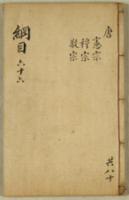 唐
憲宗
穆宗
敬宗
綱目
六十六
共八十